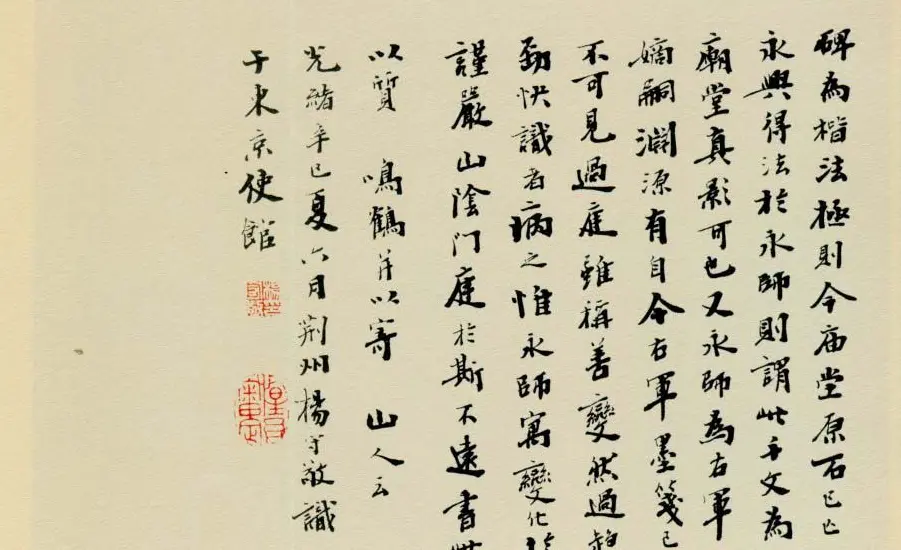 碑為楷法極則今庙堂原石已亡
永興得法於永師則謂此千文為
廟堂真影可也又永師為右軍
嫡嗣淵源有自今右軍墨箋已
不可見過庭雖稱善變然過
勁快識者病之惟永師寓變化於
謹嚴山陰門庭於斯不遠書
以質 鳴鶴并以寄 山人云
光緒辛巳夏六月荆州楊守敬識
于東京使館